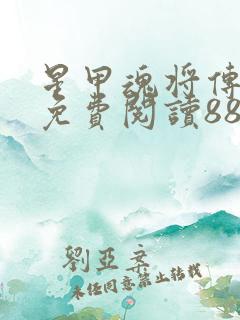 星甲魂将傳
免費閱讀88
劉亞文
未经同意禁止转载